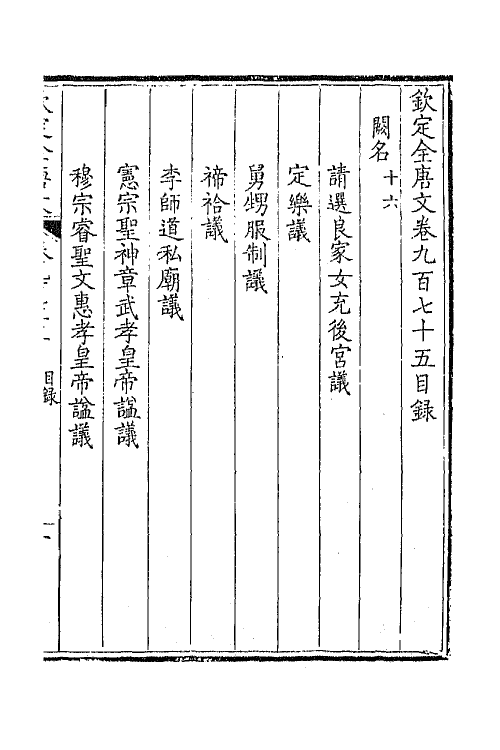 欽定全唐文卷九百七十五目録
闕名十六
請選良家女充後宮議
定樂議
舅甥服制議
禘祫議
李師道私廟議
憲宗聖神章武孝皇帝諡議
穆宗睿聖文惠孝皇帝諡議
目録